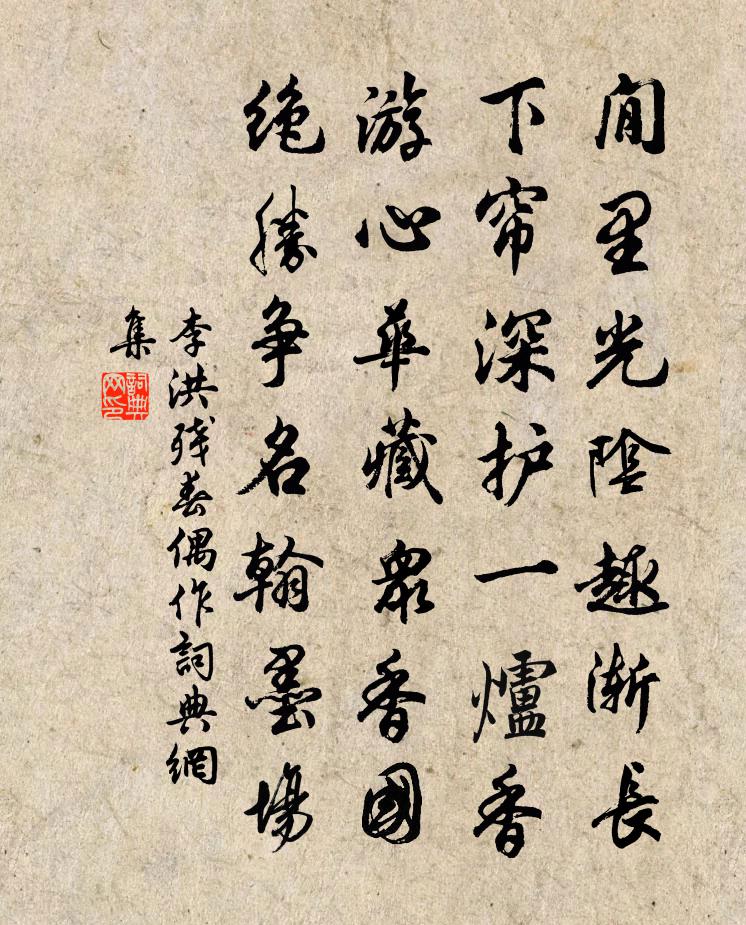 閒里光陰趣渐長
下帘深护一爐香
游心華藏衆香國
绝勝争名翰墨場
李洪残春偶作詞典網
集
詞典网印